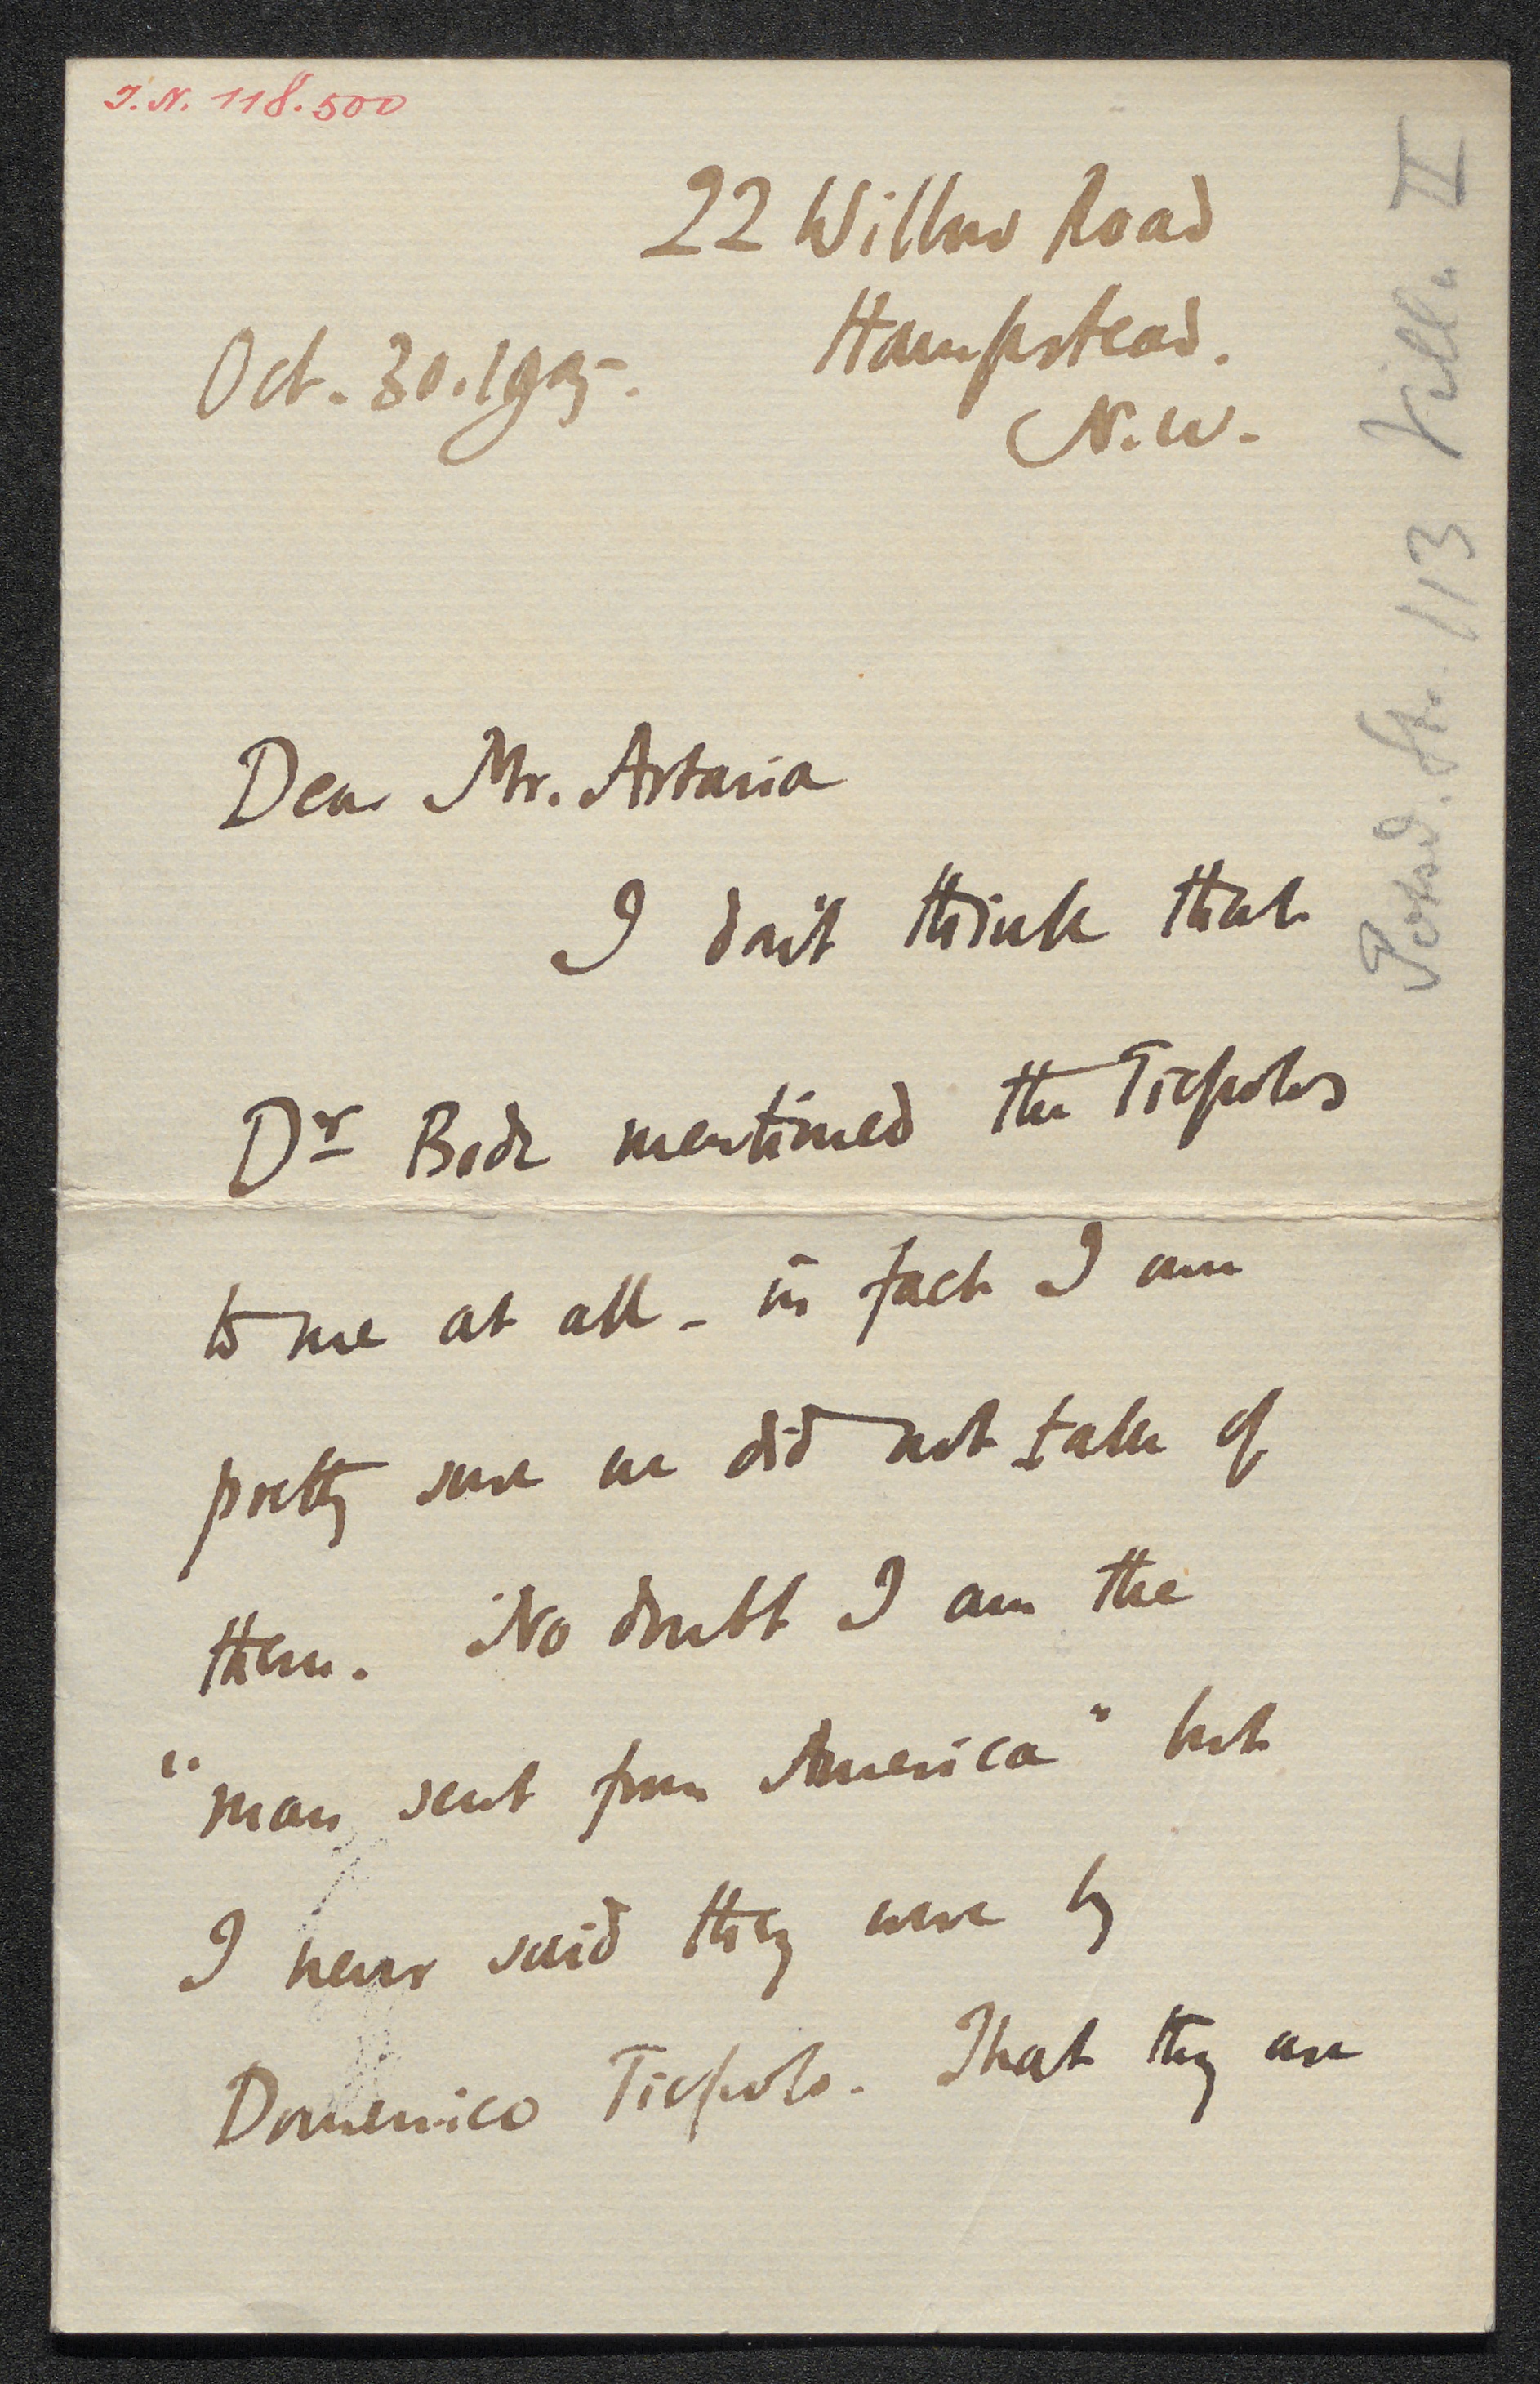 I.N. 118.500
22 Willow Road
Hampstead.
N.W.
Oct. 30. 1905.
Dear Mr. Artaria
I don't think that
Dr Bode mentioned the Tiepolos
to me at all - in fact I am
pretty sure we did not talk of
them. No doubt I am the
"man sent from America" but
I never said they were by
Domenico Tiepolo. That they are
St. 113 II